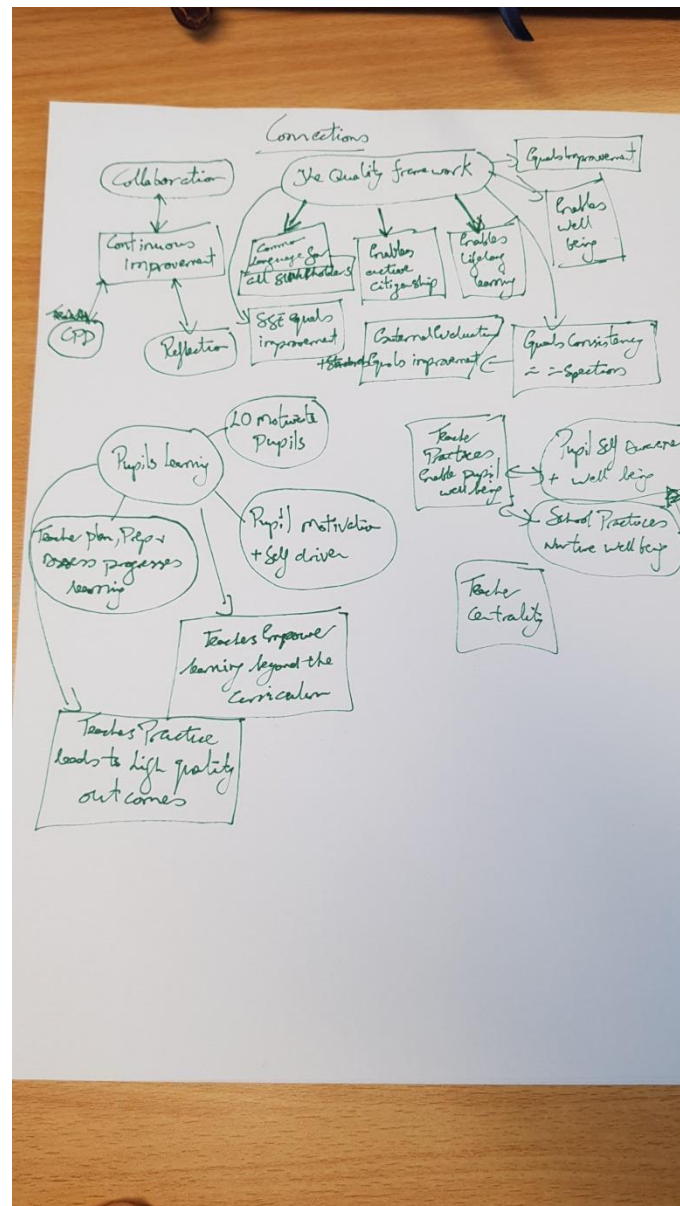 Connections
Collaboration
Continuous
improvement
CPD
Reflection
The Quality framework
Equals Improvement
Enables
well
being
Common
language for
all stakeholders
Enables
active
citizenship
Enables
lifelong
learning
SSE equals
improvement
External Evaluation
Equals improvement
Equals Consistency
= = Spections
Pupils Learning
LO Motivate
Pupils
Teacher plan, Prep +
assess progresses
learning
Pupil motivation
+ Self driven
Teaches Empower
learning beyond the
Curriculum
Teaches Practice
leads to high quality
outcomes
Teacher
Practices
Enable pupil
well being
Pupil Self Aware
+ well being
School Practices
Nurture well being
Teacher
Centrality